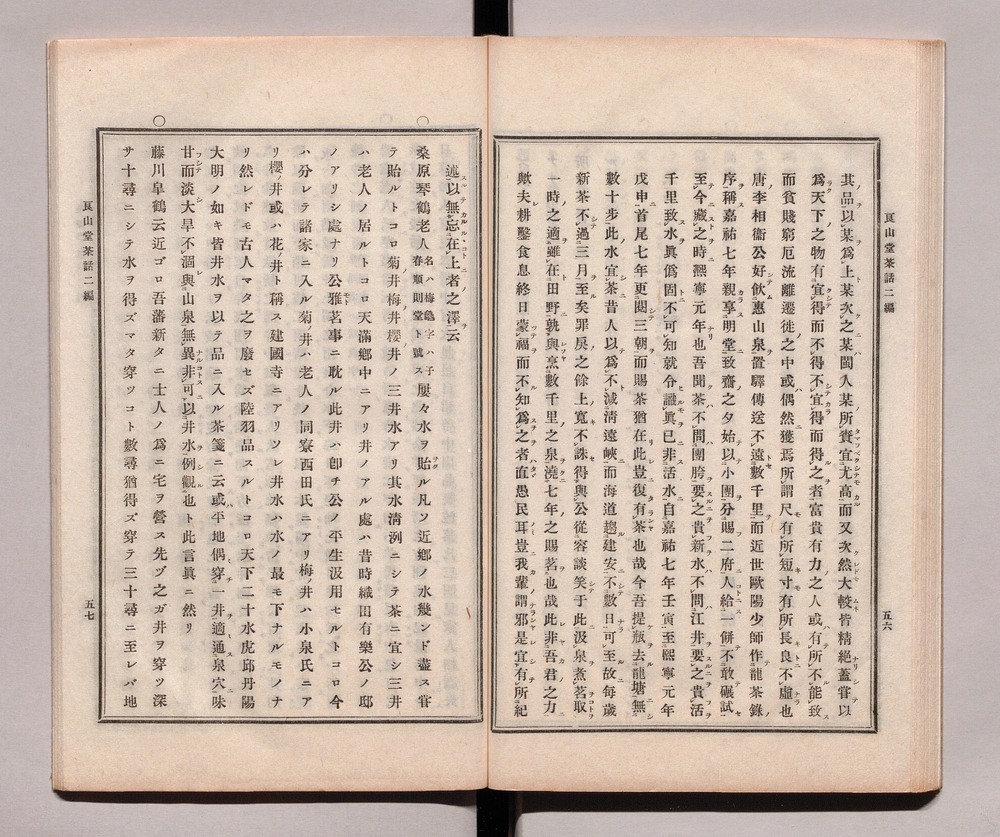 艮山堂茶話二編
五六
其品以某爲上某次之某閩人某所賚宜尤高而又次然大較皆精絕蓋嘗以
爲天下之物有宜得而不得不宜得而得之者富貴有力之人或有所不能致
而貧賤窮厄流離遷徙之中或偶然獲焉所謂尺有所短寸有所長良不虛也
唐李相衞公好飮惠山泉置驛傳送不遠數千里而近世歐陽少師作龍茶錄
序稱嘉祐七年親享明堂致齋之夕始以小團分賜二府人給一餠不敢碾試
至今藏之時熙寧元年也吾聞茶不問團胯要之貴新水不問江井要之貴活
千里致水眞僞固不可知就令識眞已非活水自嘉祐七年壬寅至熙寧元年
戊申首尾七年更閱三朝而賜茶猶在此豈復有茶也哉今吾提瓶去龍塘無
數十步此水宜茶昔人以爲不減淸遠峽而海道趨建安不數日可至故每歲
新茶不過三月至矣罪戾之餘上寬不誅得與公從容談笑于此汲泉煮茗取
一時之適雖在田野孰與烹數千里之泉澆七年之賜茗也哉此非吾君之力
歟夫耕鑿食息終日蒙福而不知爲之者直愚民耳豈我輩謂邪是宜有所紀
述以無忘在上者之澤云
○桑原琴鶴老人名ハ梅龜字ハ子春順則堂ト號ス屢々水ヲ貽ル凡ソ近鄕ノ水幾ンド盡ス嘗
テ貽ルトコロ菊井梅井櫻井ノ三井水アリ其水淸洌ニシテ茶ニ宜シ三井
ハ老人ノ居ルトコロ天滿鄕中ニアリ井ノアル處ハ昔時織田有樂公ノ邸
ノアリシ處ナリ公雅モト茗事ニ耽ル此井ハ卽チ公ノ平生汲用モルトコロ今
ハ分レテ諸家ニ入ル菊ノ井ハ老人ノ同寮西田氏ニアリ梅ノ井ハ小泉氏ニア
リ櫻ノ井或ハ花ノ井ト稱ス建國寺ニアリソレ井水ハ水ノ最モ下ナルモノナ
リ然レドモ古人マタ之ヲ廢セズ陸羽品スルトコロ天下二十水虎邱丹陽
大明ノ如キ皆井水ヲ以テ品ニ入ル茶箋ニ云或平地偶穿一井適通泉穴味
甘而淡大旱不涸與山泉無異非可以井水例觀也ト此言眞ニ然リ
○藤川皐鶴云近ゴロ吾藩新タニ士人ノ爲ニ宅ヲ營ス先ヅ之ガ井ヲ穿ツ深
サ十尋ニシテ水ヲ得ズマタ穿ツコト數尋猶得ズ穿テ三十尋ニ至レバ地
艮山堂茶話二編
五七